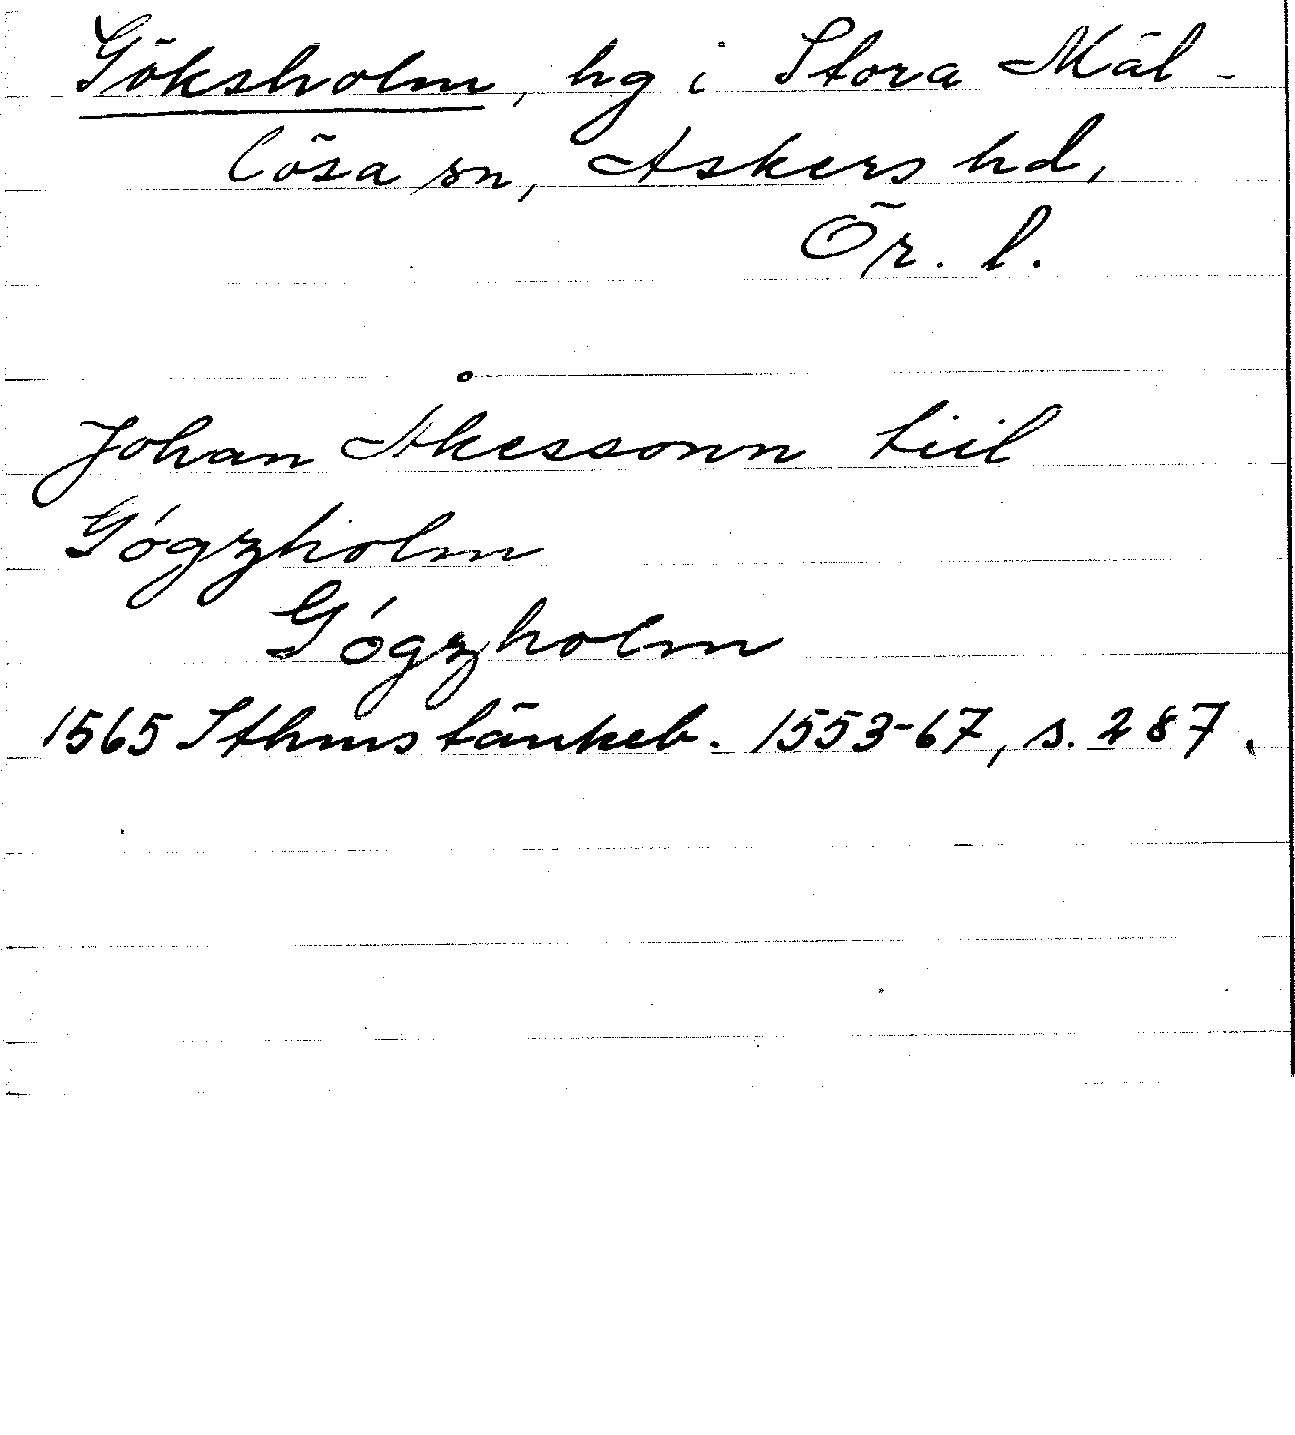 Göksholm, hg i Stora Mäl-
lösa sn, Askers hd,
Ör. l.
Johan Åkessonn tiil
Gógzholm
Gógzholm
1565 Sthms tänkeb. 1553-67, s. 287.